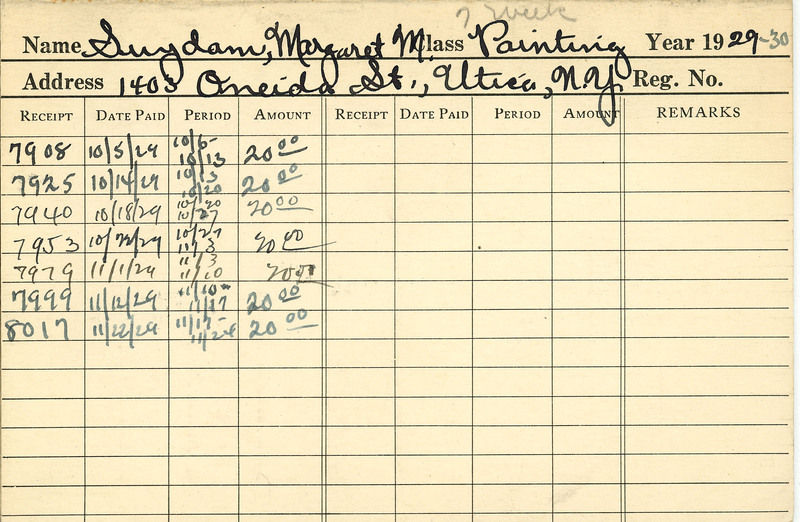 7 week
Name Suydam, Margaret M. Class Painting Year 1929-30
Address 1403 Oneida St., Utica, N.Y. Reg. No.
RECEIPT DATE PAID PERIOD AMOUNT RECEIPT DATE PAID PERIOD AMOUNT REMARKS
7908 10/5/29 10/6- 10/13 20 00
7925 10/14/29 10/13 10/20 20 00
7940 10/18/29 10/20 10/27 20 00
7953 10/22/29 10/27 11/3 20 00
7979 11/1/29 11/3 11/10 20 00
7999 11/12/29 11/10- 11/17 20 00
8017 11/22/29 11/17- 11/24 20 00